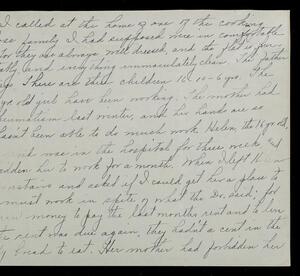 I called at the home of one of the cooking
se family I had supposed were in comfortable
for they are always well dressed, and the flat is fur-
and everything immaculately clean. The father
There are three children 16-10-6 yrs. The
yr. old girl have been working. The mother had
rheumatism last winter, and her hands are so
hasn't been able to do much work. Helen, the 16 yr. old,
and was in the hospital for three weeks and
dden her to work for a month. When I left Helen
stairs and asked if I could get her a place to
must work in spite of what the Dr. said; for
money to pay the last months rent and to live
rent was due again, they hadn't a cent in the
bread to eat. Her mother had forbidden her